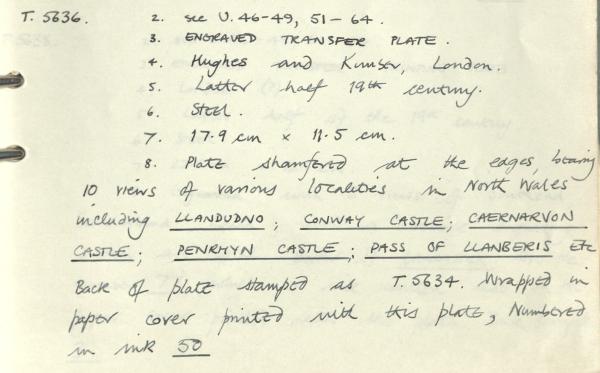 T. 5636. 2. see U.46-49, 51-64.
3. ENGRAVED TRANSFER PLATE.
4. Hughes and Kimber, London.
5. Latter half 19th century.
6. Steel.
7. 17.9 cm x 11.5 cm.
8. Plate shamfered at the edges, bearing
10 views of various localities in North Wales
including LLANDUDNO; CONWAY CASTLE; CAERNARVON
CASTLE; PENRHYN CASTLE; PASS OF LLANBERIS Etc
Back of plate stamped as T.5634. Wrapped in
paper cover printed with this plate, Numbered
in ink 50